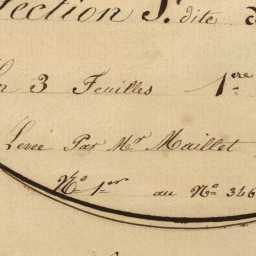 Section S. dite
n 3 Feuilles 1ere
Levée Par Mr Maillet
No 1er au No 346